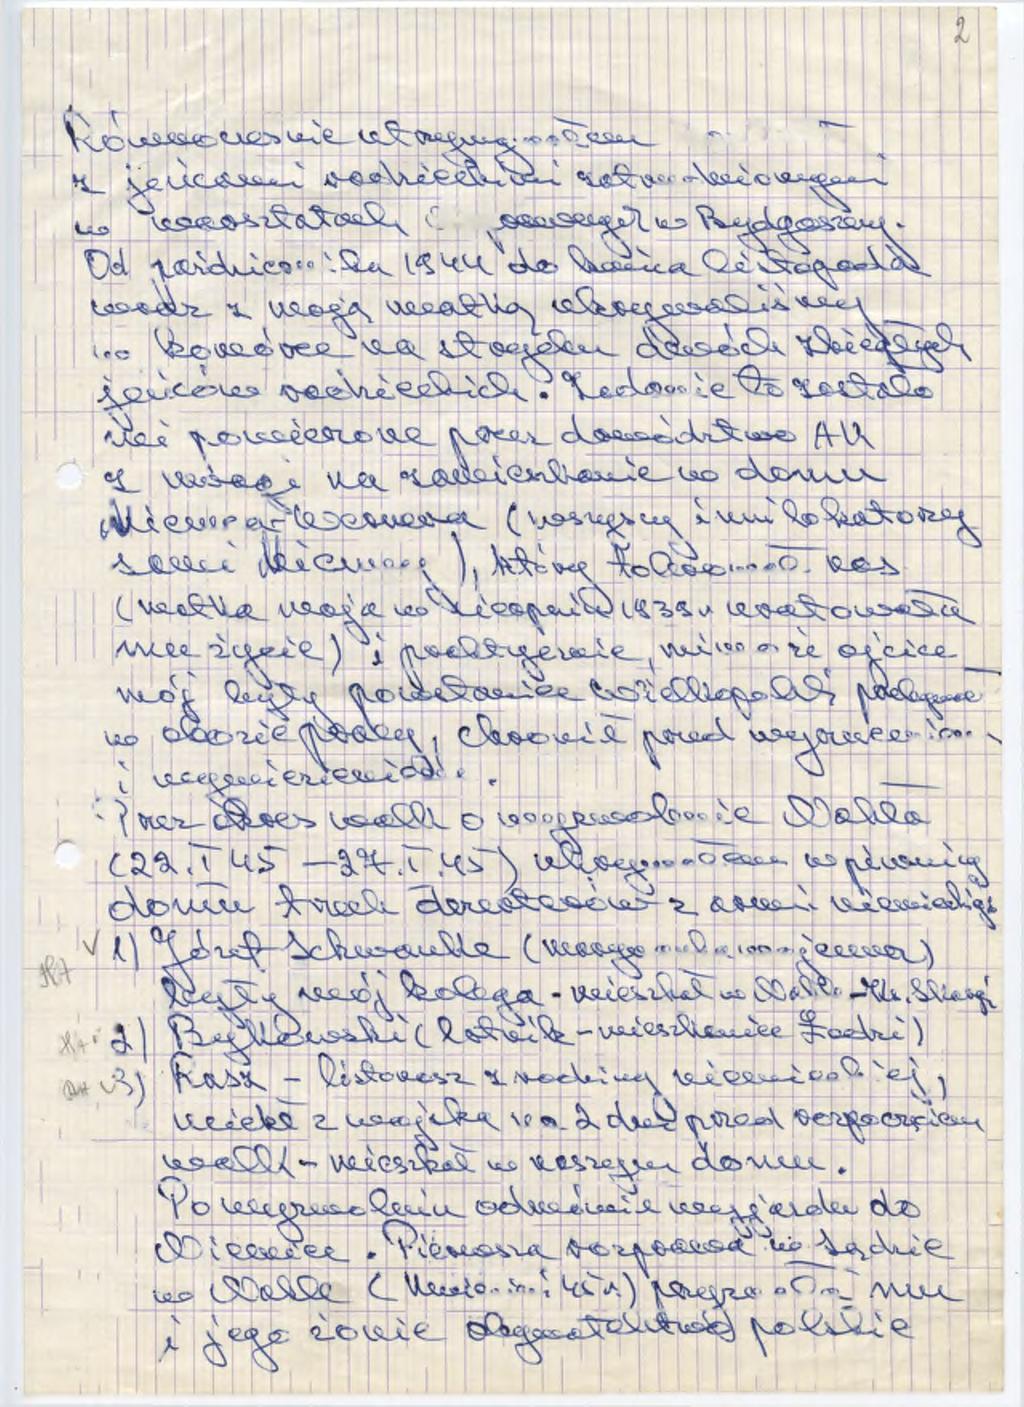 2
Równocześnie utrzymywałem
z jeńcami radzieckimi zatrudnionymi
w warsztatach w Bydgoszczy.
Od października 1944 do końca listopada
wraz z moją matką ukrywaliśmy
komórce na strychu dwóch zbiegłych
jeńców radzieckich. Zadanie to zostało
mi powierzone przez dowództwo AK
z uwagi na zamieszkanie w domu
Niemca (wszyscy inni lokatorzy
sami Niemcy), który tolerował nas
(matka moja w sierpniu 1939 r uratowała
mu życie) i faktycznie, mimo że ojciec
mój były powstaniec wielkopolski
w obozie pracy, chronił przed wyrzuceniem
i wywiezieniem.
Przez okres walk o wyzwolenie Nakła
(22.I 45 – 27.I.45) ukrywałem w piwnicy
domu trzech dezerterów z armii niemieckiej
HA √ 1) Józef Schwanke
były mój kolega – mieszkał w Nakle – Ks. Skargi
2) Bytkowski (lotnik – mieszkaniec Łodzi)
√ 3) Rasz – listonosz z rodziny niemieckiej,
uciekł z wojska na 2 dni przed rozpoczęciem
walk – mieszkał w naszym domu.
Po wyzwoleniu odmówił wyjazdu do
Niemiec. Pierwsza rozprawa w Sądzie
w Nakle 45 r) przyznała mu
i jego żonie obywatelstwo polskie